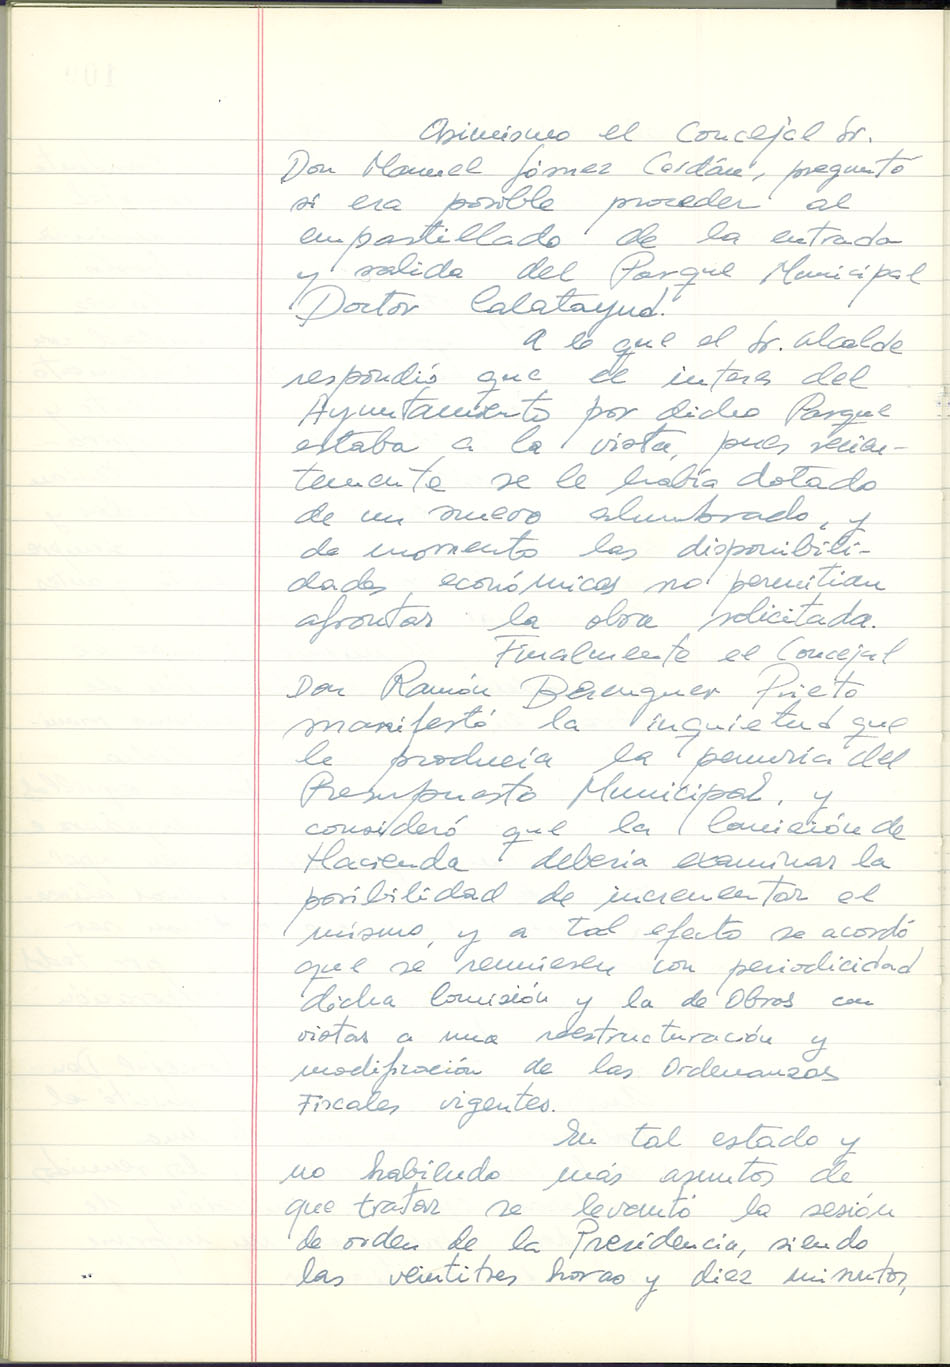 Asimismo el Concejal Sr.
Don Manuel Gómez Cerdán, preguntó
si era posible proceder al
empastillado de la entrada
y salida del Parque Municipal
Doctor Calatayud.
A lo que el Sr. Alcalde
respondió que el interes del
Ayuntamiento por dicho Parque
estaba a la vista, pues recien-
temente se le había dotado
de un nuevo alumbrado, y
de momento las disponibili-
dades económicas no permitian
afrontar la obra solicitada.
Finalmente el Concejal
Don Ramón Berenguer Prieto
manifestó la inquietud que
le producía la penuria del
Presupuesto Municipal, y
consideró que la Comisión de
Hacienda debería examinar la
posibilidad de incrementar el
mismo, y a tal efecto se acordó
que se reuniesen con periodicidad
dicha Comisión y la de Obras con
vistas a una reestructuración y
modificación de las Ordenanzas
Fiscales vigentes.
En tal estado y
no habiendo más asuntos de
que tratar se levantó la sesión
de orden de la Presidencia, siendo
las veintitres horas y diez minutos,